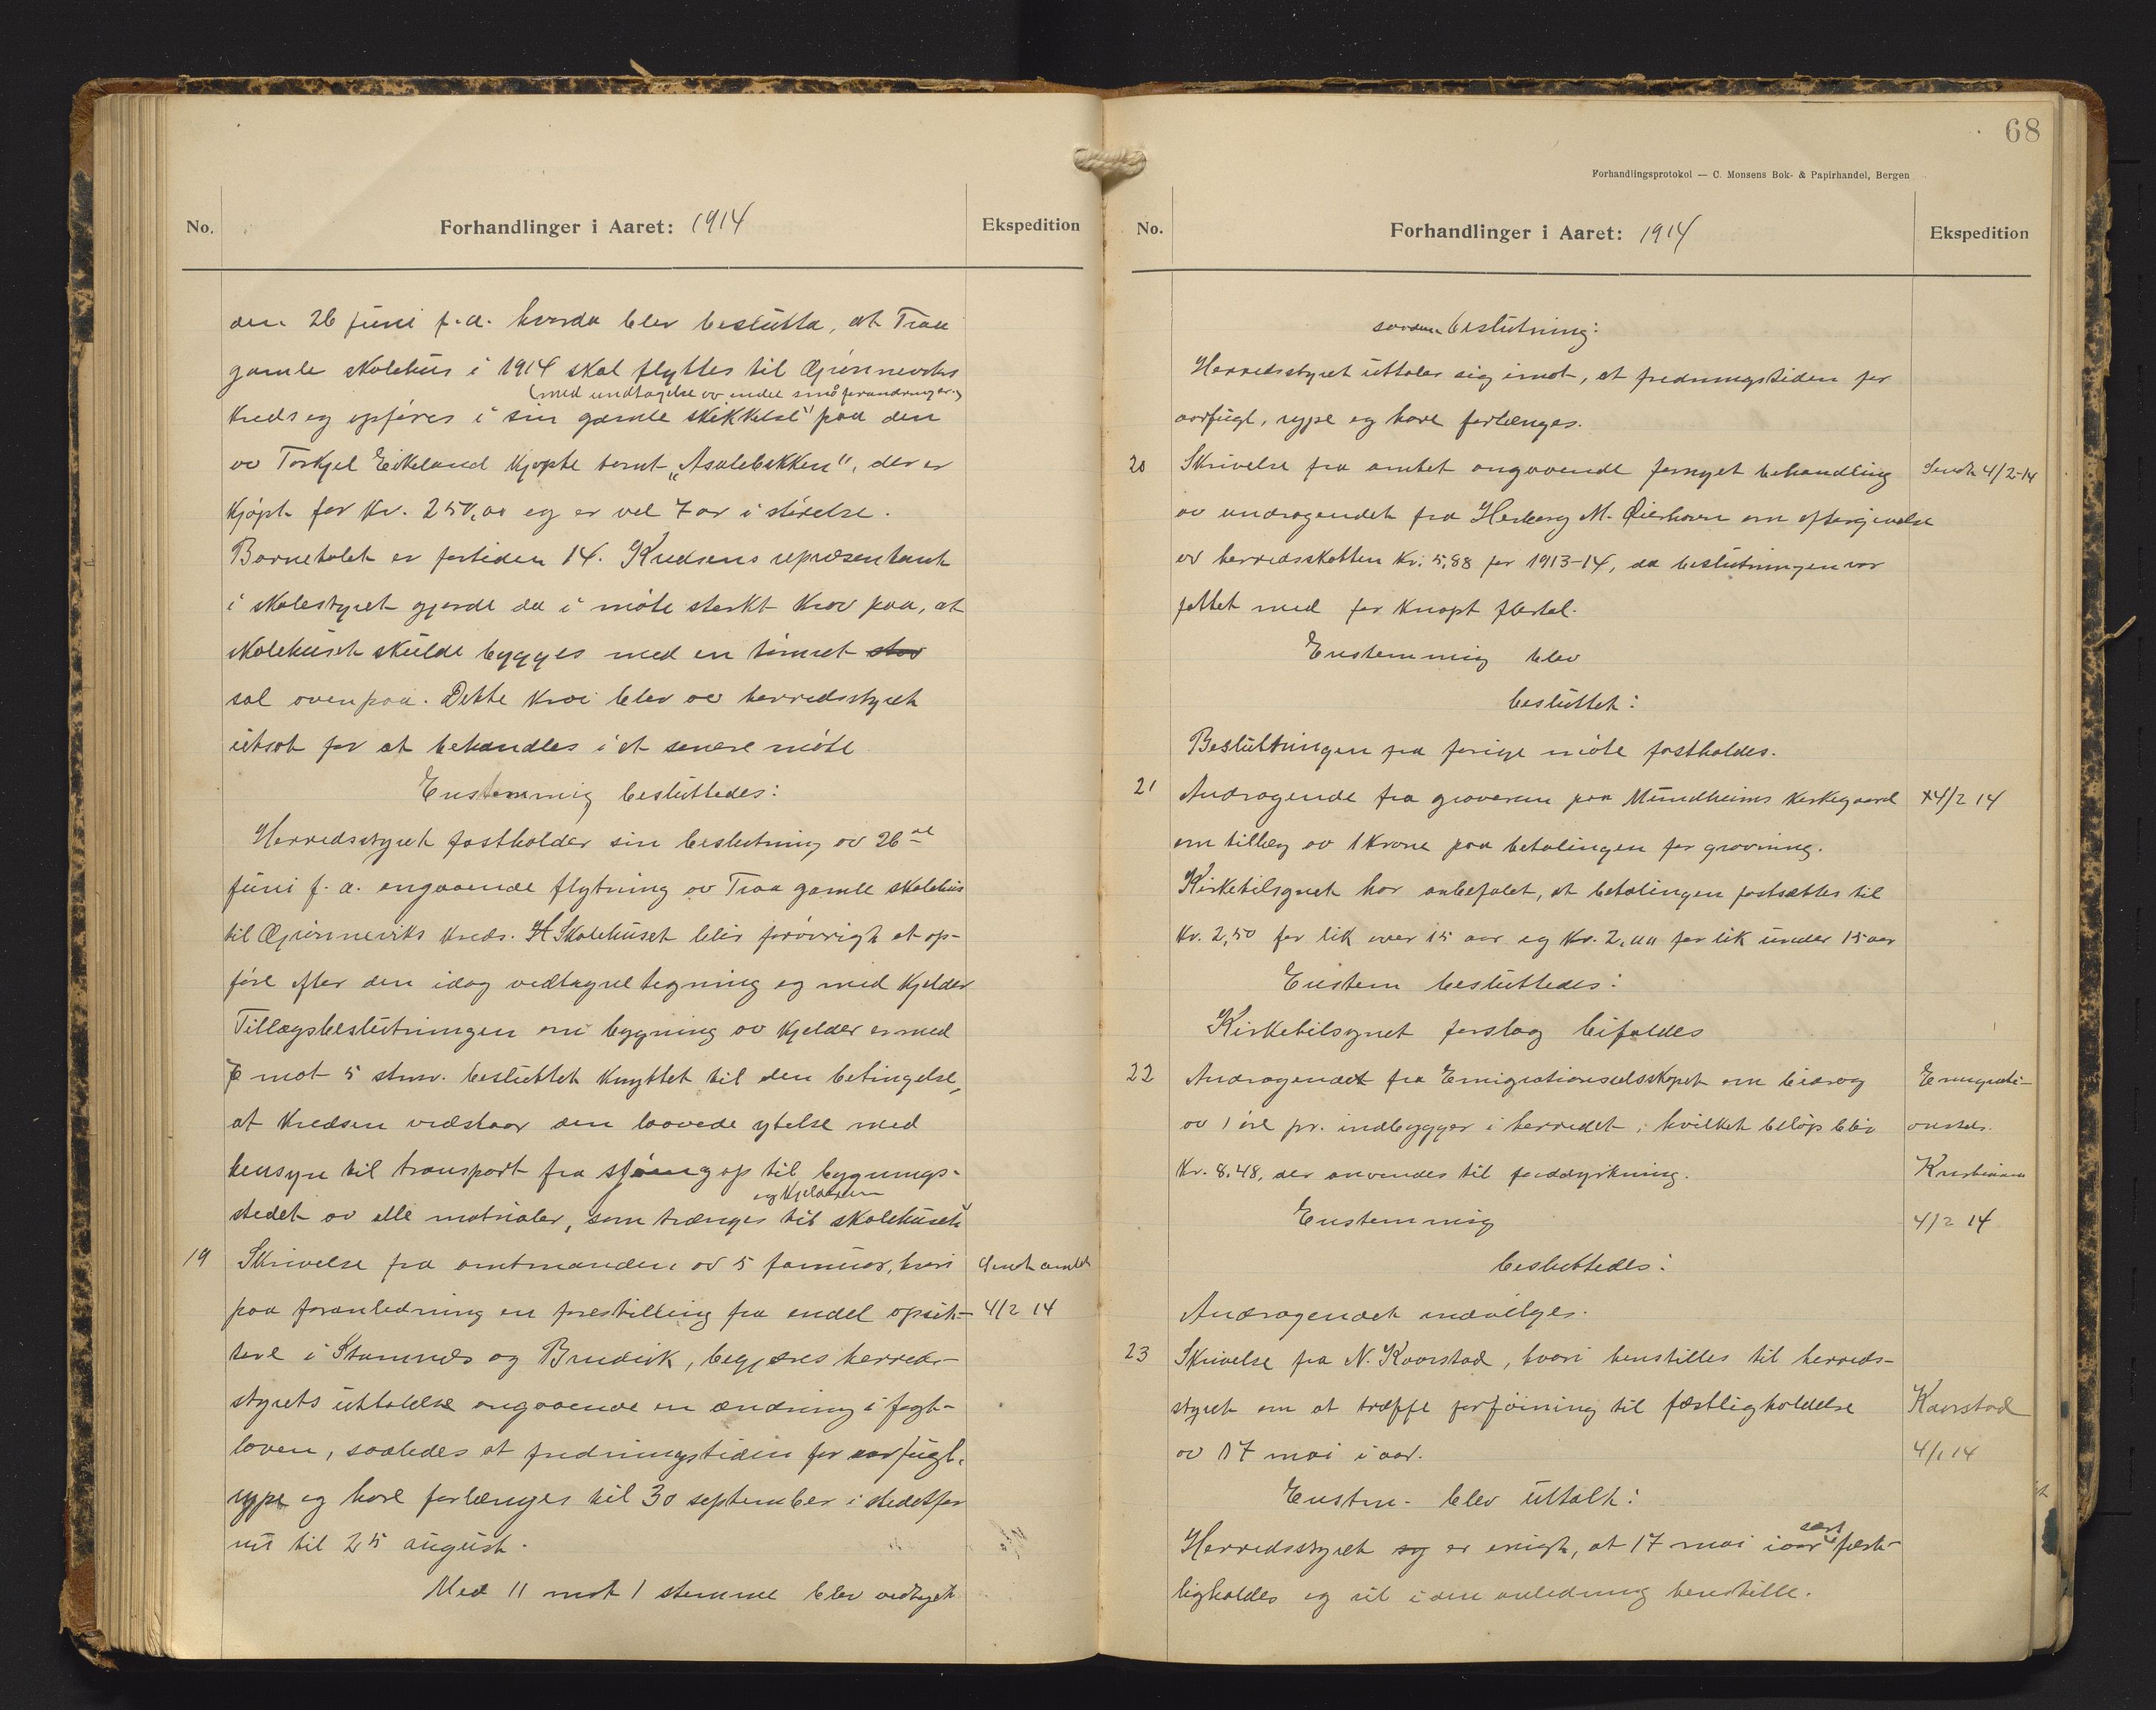 No.
Forhandlinger i Aaret: 1914
Ekspedition
den 26 juni f.a. hvorda blev beslutta, at Traa
gamle skolehus i 1914 skal flyttes til Gjønneviks
(med undtagelse av endel små forandringer)
kreds og opføres i sin gamle skikkelse paa den
av Torkjel Eikeland kjøpte tomt „Asalebakken", der er
kjøpt for kr. 250,00 og er vel 7 ar i størelse.
Barnetalet er fortiden 14. Kredsens repræsentant
i skolestyret gjorde da i møte sterkt krav paa, at
skolehuset skulde bygges med en tømret stov
sal ovenpaa. Dette krav blev av herredsstyret
utsat for at behandles i et senere møte
Enstemmig besluttedes:
Herredsstyret fastholder sin beslutning av 26de
juni f.a. angaaende flytning av Traa gamle skolehus
til Gjønneviks kreds. Skolehuset blir forøvrigt at op-
føre efter den idag vedtagne tegning og med kjelder
Tillægsbeslutningen om bygning av kjelder er med
mot 5 stem. besluttet knyttet til den betingelse,
at kredsen vedstaar den lovede ytelse med
hensyn til transport fra sjøen og op til bygnings-
og kjelderen
stedet av alle matrialer, som trænges til skolehuset
19
Skrivelse fra amtmanden av 5 januar, hvori
Sendt amtet
paa foranledning en forestilling fra endel opsit-
4/2 14
tere i Stamnes og Brudvik, begjæres herreds-
styrets uttalelse angaaende en ændring i jagt-
loven, saaledes at fredningstiden for aarfugl,
rype og hare forlænges til 30 september i stedetfor
nu til 25 august.
Med 11 mot 1 stemme blev vedtaget
68
Forhandlingsprotokol — C. Monsens Bok- & Papirhandel, Bergen
No.
Forhandlinger i Aaret: 1914
Ekspedition
saadan beslutning:
Herredsstyret uttaler sig imot, at fredningstiden for
aarfugl, rype og hare forlænges.
20
Skrivelse fra amtet angaaende fornyet behandling
Sendt 4/2-14
av andragendet fra Herborg M. om eftergivelse
av herredsskatten kr. 5,88 for 1913-14, da beslutningen var
fattet med for knapt flertal.
Enstemmig blev
besluttet:
Beslutningen fra forrige møte fastholdes.
21
Andragende fra graveren paa Mundheims kirkegaard
4/2 14
om tillæg av 1 krone paa betalingen for gravning.
Kirketilsynet har anbefalet, at betalingen fastsættes til
kr. 2,50 for lik over 15 aar og kr. 2,00 for lik under 15 aar
Enstem besluttedes:
Kirketilsynet forslag bifaldes
22
Andragendet fra Emigrationsselskapet om bidrag
Emigrati-
av 1 øre pr. indbygger i herredet, hvilket beløp blir
onsels.
kr. 8,48, der anvendes til jorddyrkning.
Kristiania
Enstemmig
4/2 14
besluttedes:
Andragendet indvilges.
23
Skrivelse fra N. Kaarstad, hvori henstilles til herreds-
styret om at træffe forføining til festligholdelse
Kaarstad
av 17 mai i aar.
4/1 14
Enstm. blev uttalt:
sært
Herredsstyret er enigt, at 17 mai iaar fest-
ligholdes og vil i den anledning henstille.